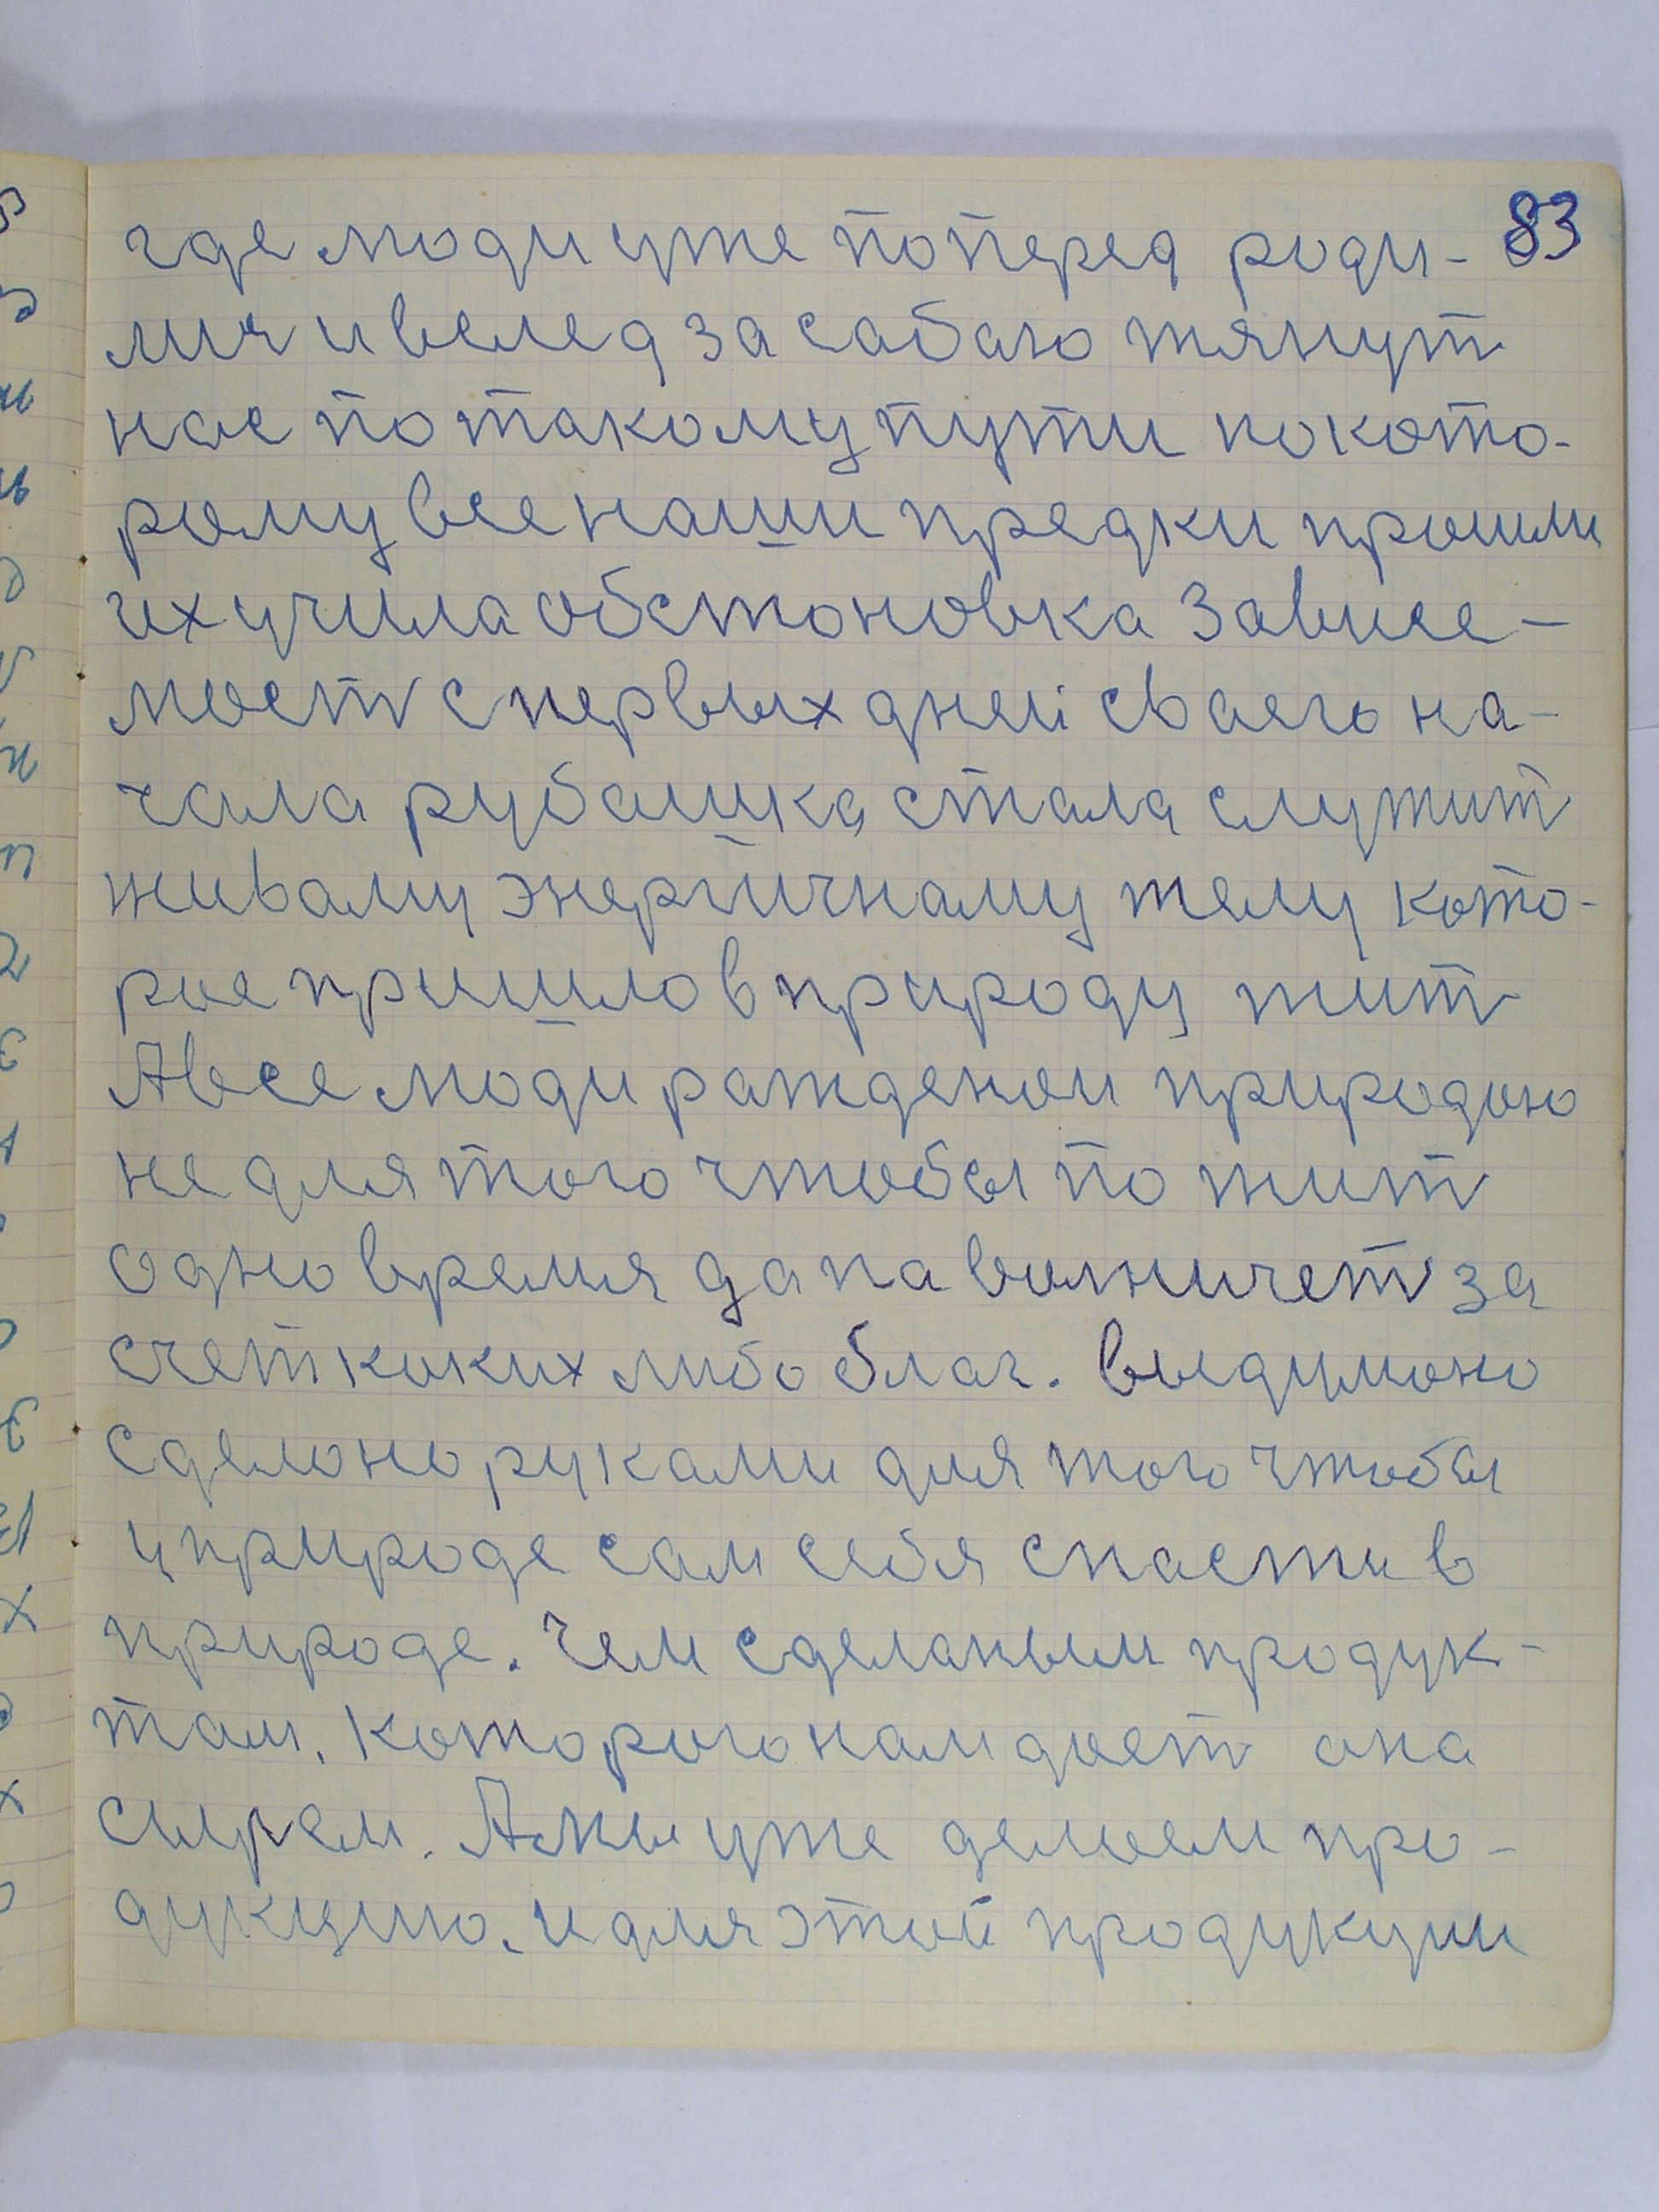 где люди уже поперед роди- 83
лис и вслед за сабаю тянут
нас по такому пути по кото-
рому все наши предки прошли
их учила обстоновка Зависе-
мост с первых дней сваего на-
чала рубашка стала служит
живаму энергичнаму телу кото-
рое пришло в природу жит
А все люди рожденои природою
не для того чтобы по жит
одно время да па волничет за
счет коких либо благ. выдумоно
сделоно руками для того чтобы
у природе сам себя спасти в
природе. Чем сделаным продук-
там. Которого нам дает она
сырем. А мы уже делаем про-
дукцию. и для этой продукции